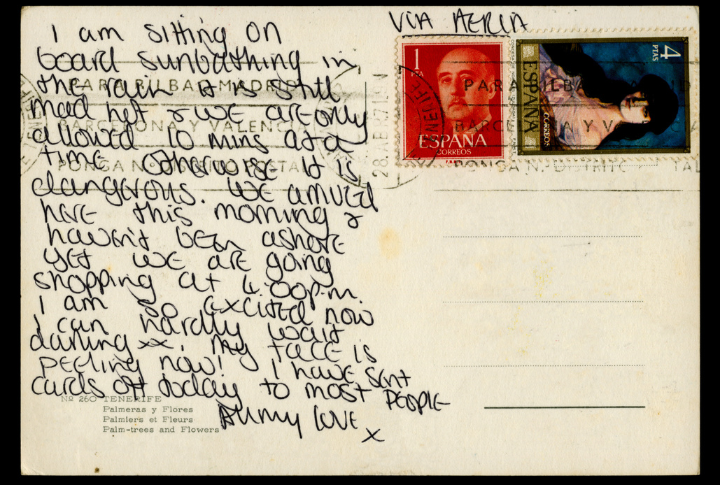 VIA AEREA
I am sitting on
board sunbathing in
the rain it is still
mad hot & we are only
allowed 10 mins at a
time otherwise it is
dangerous. We arrived
here this morning &
haven't been ashore
yet we are going
shopping at 4.00p.m.
I am so excited now
I can hardly wait
darling xx. My face is
peeling now! I have sent
cards off today to most people
All my love
x
Nº 260 TENERIFE
Palmeras y Flores
Palmiers et Fleurs
Palm-trees and Flowers
1
ESPAÑA
CORREOS
4
PTAS
ESPAÑA
CORREOS
PARA BILBAO MADRID
BARCELONA Y VALENCIA
PONGA N.
PARA BILBA
BARCELON Y V
PONGA N.